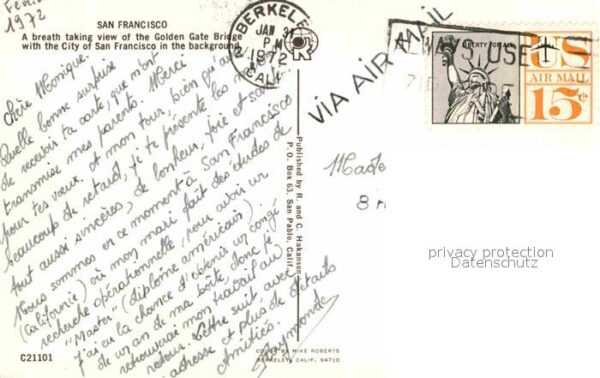 Février
1972
SAN FRANCISCO
A breath taking view of the Golden Gate Bridge
with the City of San Francisco in the background.
Chère Monique,
Quelle bonne surprise
de recevoir ta carte, que m'ont
transmise mes parents. Merci
pour tes vœux et mon tour, bien qu'avec
beaucoup de retard, je te présente les miens
tout aussi sincères, de bonheur, joie et santé.
Nous sommes en ce moment à San Francisco
(Californie) où mon mari fait des études de
recherche opérationnelle, pour avoir un
"Master" (diplôme américain).
J'ai eu la chance d'obtenir un congé
de un an de ma boîte, donc je
retrouverai mon travail au
retour. Lettre suit, avec
adresse et plus de détails
Amitiés.
Raymonde
C21101
Published by R. and C. Hakanson
P. O. Box 63, San Pablo, Calif.
COLOR BY MIKE ROBERTS
BERKELEY, CALIF. 94710
BERKELEY
JAN 31
PM
1972
CALIF
VIA AIR MAIL
USE
LIBERTY FOR ALL
US
AIR MAIL
15¢
8
privacy protection
Datenschutz